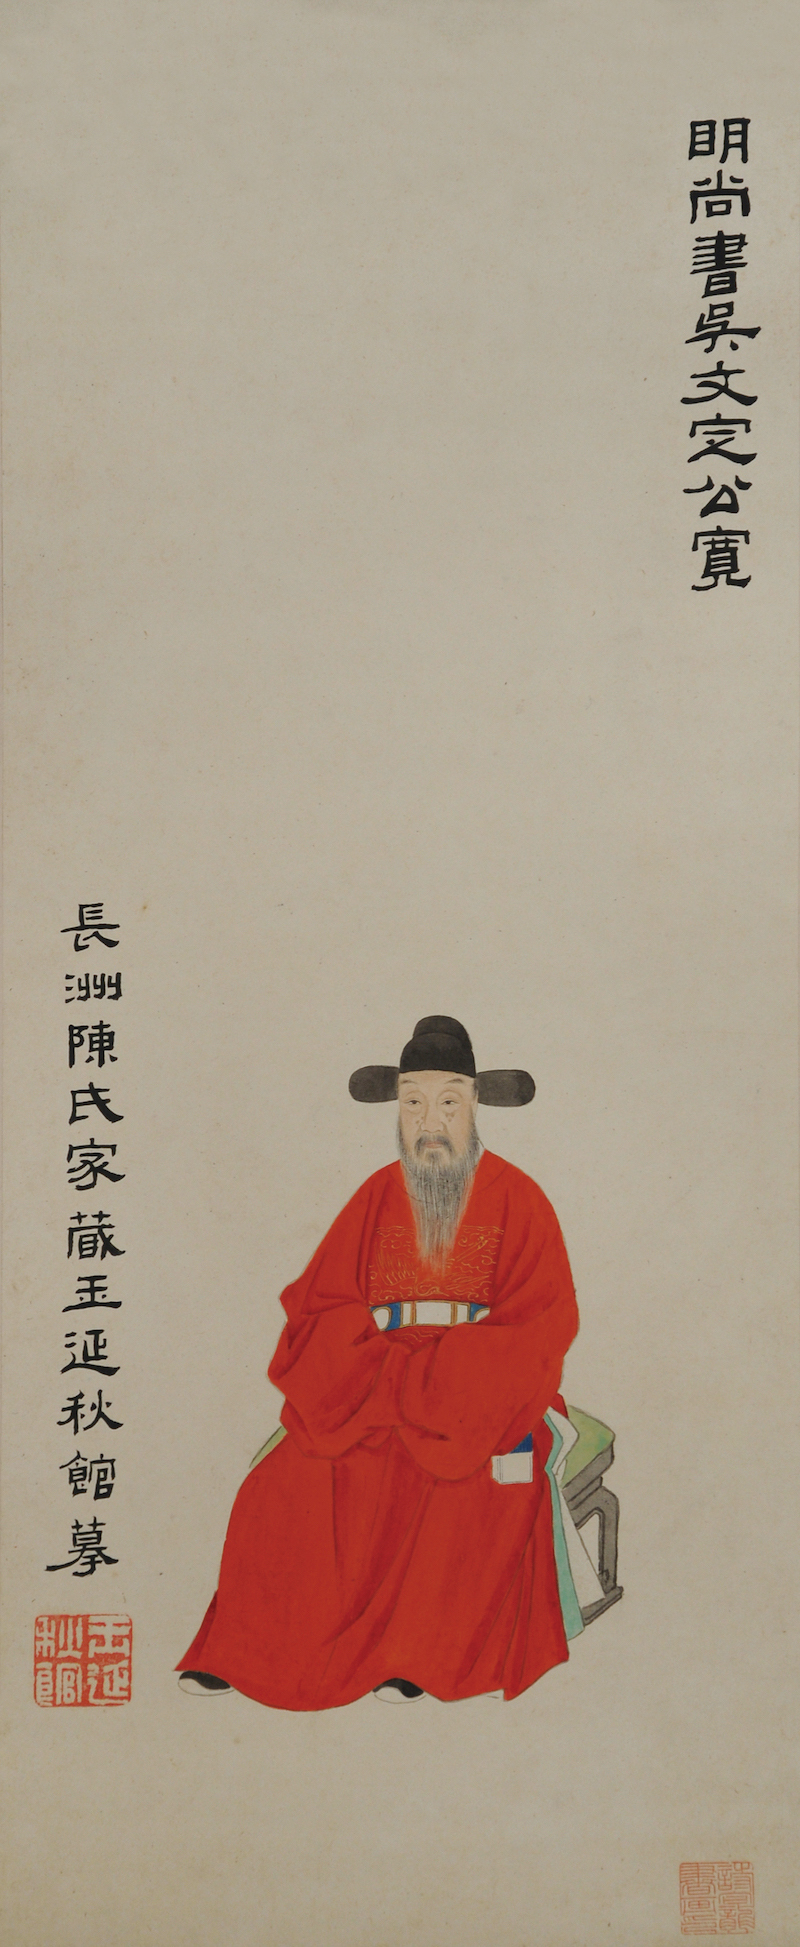 明尚書吳文定公寬
長洲陳氏家藏玉延秋館摹
玉延
秋館